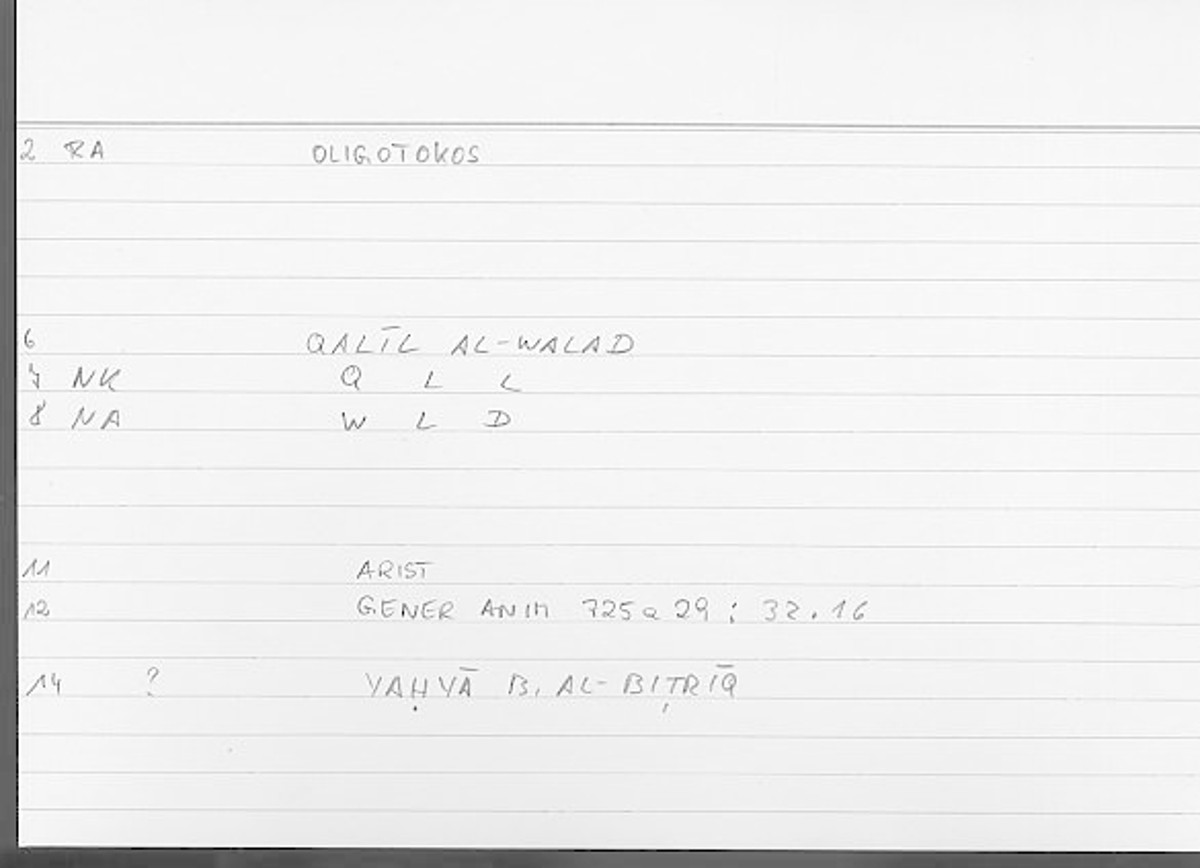 2 RA OLIGOTOKOS
6 QALĪL AL-WALAD
7 NK Q L L
8 NA W L D
11 ARIST
12 GENER ANIM 725a 29 ; 32.16
14 ? YAḤYĀ B. AL-BIṬRĪQ